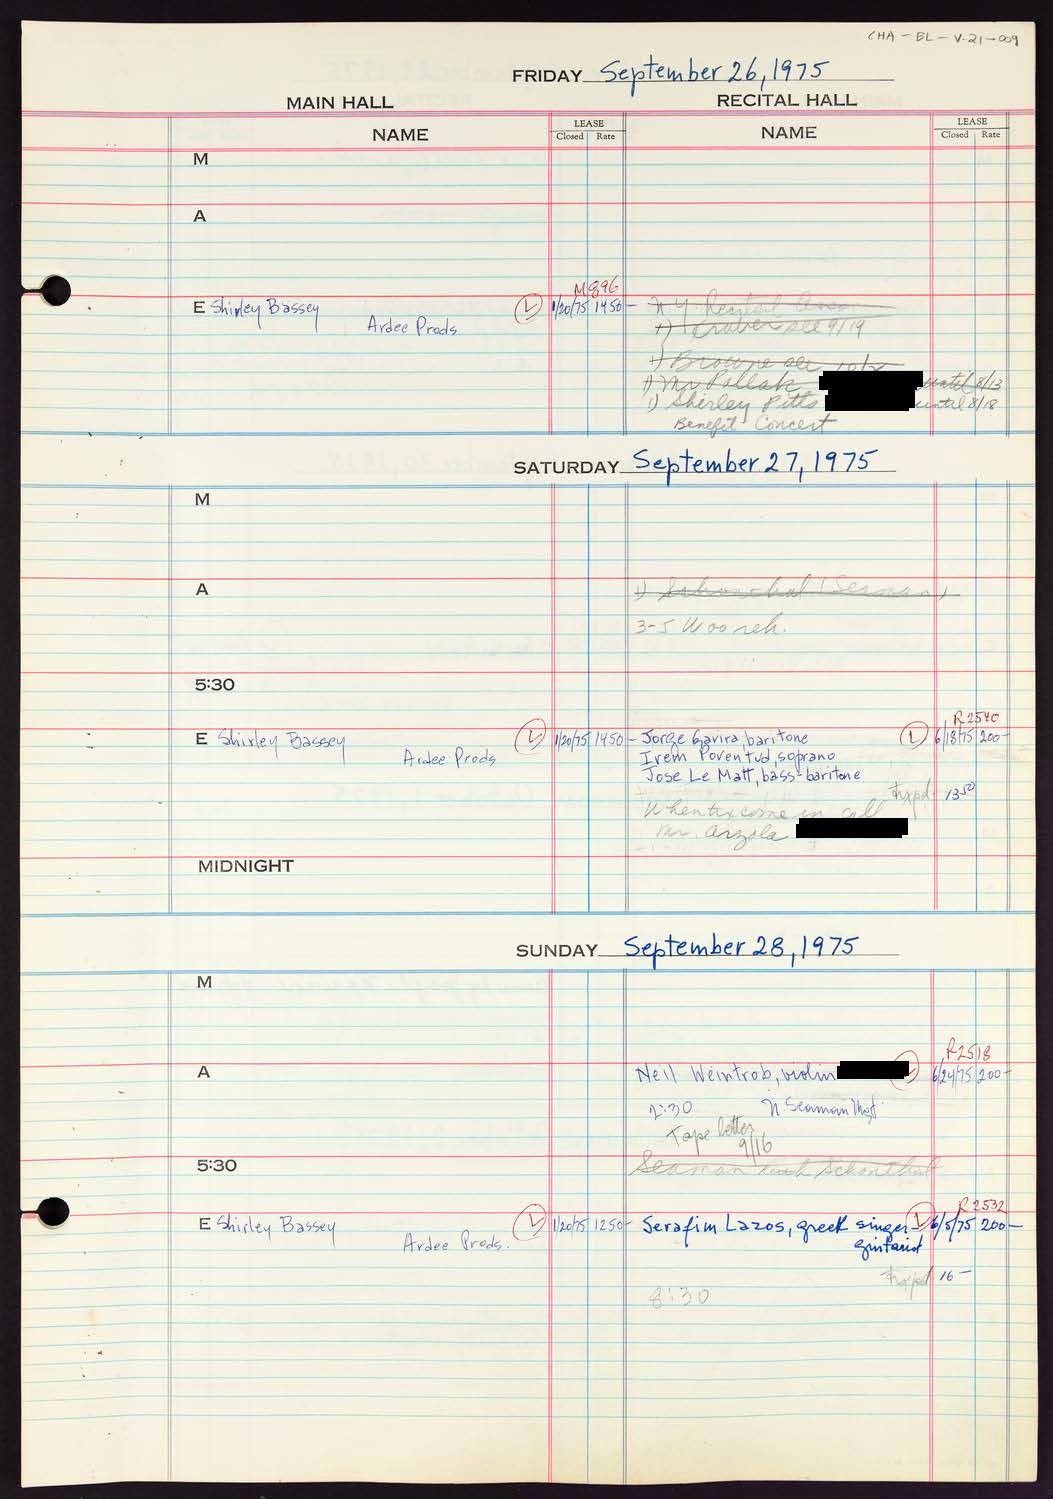 CHA-BL-V.21-009
FRIDAY September 26, 1975
MAIN HALL
RECITAL HALL
NAME
LEASE
Closed Rate
NAME
LEASE
Closed Rate
M
A
M 896
E Shirley Bassey
L
1/20/75 1450-
Ardee Prods
N.Y. Recital Assoc
1) Graber see 9/19
1) Browne see 10/
1) Mr Pollak until 8/13
1) Shirley Pitts until 8/18
Benefit Concert
SATURDAY September 27, 1975
M
A
1) Schonthal (Seaman)
3-5 Woo reh.
5:30
R2540
E Shirley Bassey
L
1/20/75 1450-
Ardee Prods
Jorge Gavira, baritone
L
6/18/75 200-
Irem Poventud, soprano
Jose Le Matt, bass-baritone
Txpd 13 50
When tix come in call
Mr. Arzola
MIDNIGHT
SUNDAY September 28, 1975
M
R2518
A
Neil Weintrob, violin
L
6/24/75 200-
2:30 N. Seaman Mgt.
Tape letter
9/16
5:30
Seaman Schonthal
R2532
E Shirley Bassey
L
1/20/75 1250-
Ardee Prods.
Serafim Lazos, greek singer-
L
6/5/75 200-
guitarist
Txpd 16-
8:30